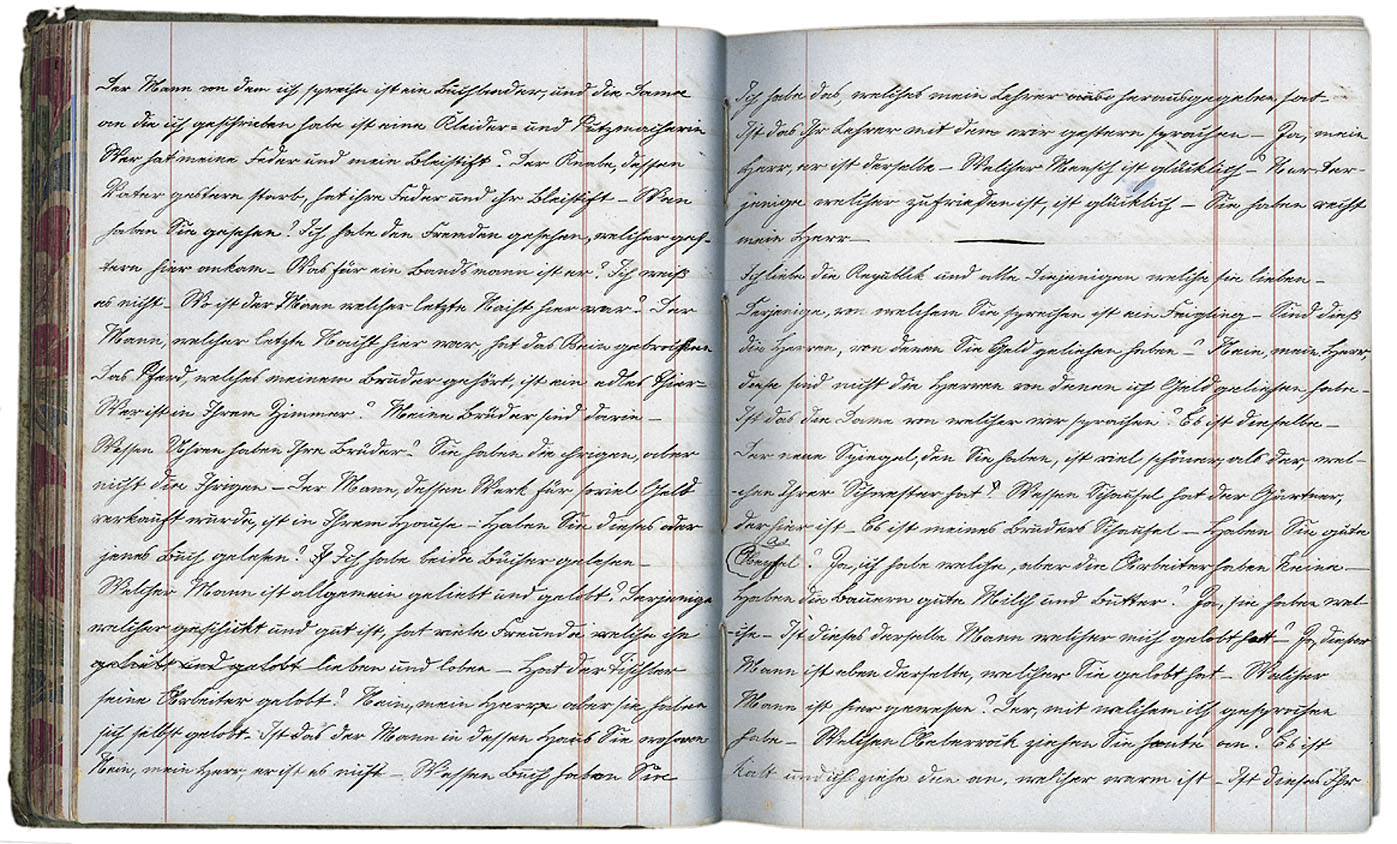 Der Mann von dem ich spreche ist ein Buchbinder, und die Dame
an die ich geschrieben habe ist eine Kleider= und Putzmacherin
Wer hat meine Feder und mein Bleistift? Der Knabe, dessen
Vater gestern starb, hat ihre Feder und ihr Bleistift – Wen
haben Sie gesehen? Ich habe den Fremden gesehen, welcher ges-
tern hier ankam – Was für ein Landsmann ist er? Ich weiß
es nicht – Wo ist der Mann welcher letzte Nacht hier war? – Der
Mann, welcher letzte Nacht hier war, hat das Bein gebrochen
Das Pferd, welches meinem Bruder gehört, ist ein edles Thier –
Wer ist in Ihrem Zimmer? Meine Brüder sind darin –
Wessen Uhren haben Ihre Brüder? Sie haben die ihrigen, aber
nicht die Ihrigen – Der Mann, dessen Werk für soviel Geld
verkauft wurde, ist in Ihrem Hause – Haben Sie dieses oder
jenes Buch gelesen? Ich habe beide Bücher gelesen –
Welcher Mann ist allgemein geliebt und gelobt? Derjenige
welcher geschickt und gut ist, hat viele Freunde welche ihn
geliebt und gelobt lieben und loben – Hat der Tischler
seine Arbeiter gelobt? Nein, mein Herr aber sie haben
sich selbst gelobt. Ist das der Mann in dessen Haus Sie wohnen
Nein, mein Herr, er ist es nicht – Wessen Buch haben Sie
Ich habe das, welches mein Lehrer herausgegeben hat –
Ist das Ihr Lehrer mit dem wir gestern sprachen – Ja, mein
Herr, er ist derselbe – Welcher Mensch ist glücklich? – Nur der-
jenige welcher zufrieden ist, ist glücklich – Sie haben recht
mein Herr –
Ich liebe die Republik und alle diejenigen welche sie lieben –
Derjenige, von welchem Sie sprechen ist ein Feigling – Sind dieß
die Herren, von denen Sie Geld geliehen haben –? Nein, mein Herr
diese sind nicht die Herren von denen ich Geld geliehen habe –
Ist das die Dame von welcher wir sprachen? Es ist dieselbe –
Der neue Spiegel, den Sie haben, ist viel schöner, als der, wel-
chen Ihrer Schwester hat? Wessen Schaufel hat der Gärtner,
der hier ist – Es ist meines Bruders Schaufel – Haben Sie gute
? Ja, ich habe welche, aber die Arbeiter haben keine –
Haben die Bauern gute Milch und Butter? Ja, sie haben wel-
che – Ist dieses derselbe Mann welcher mich gelobt hat –? Ja, dieser
Mann ist eben derselbe, welcher Sie gelobt hat – Welcher
Mann ist hier gewesen? Der, mit welchem ich gesprochen
habe – Welchen Oberrock ziehen Sie heute an? Es ist
kalt und ich ziehe den an, welcher warm ist – Ist dieses Ihr